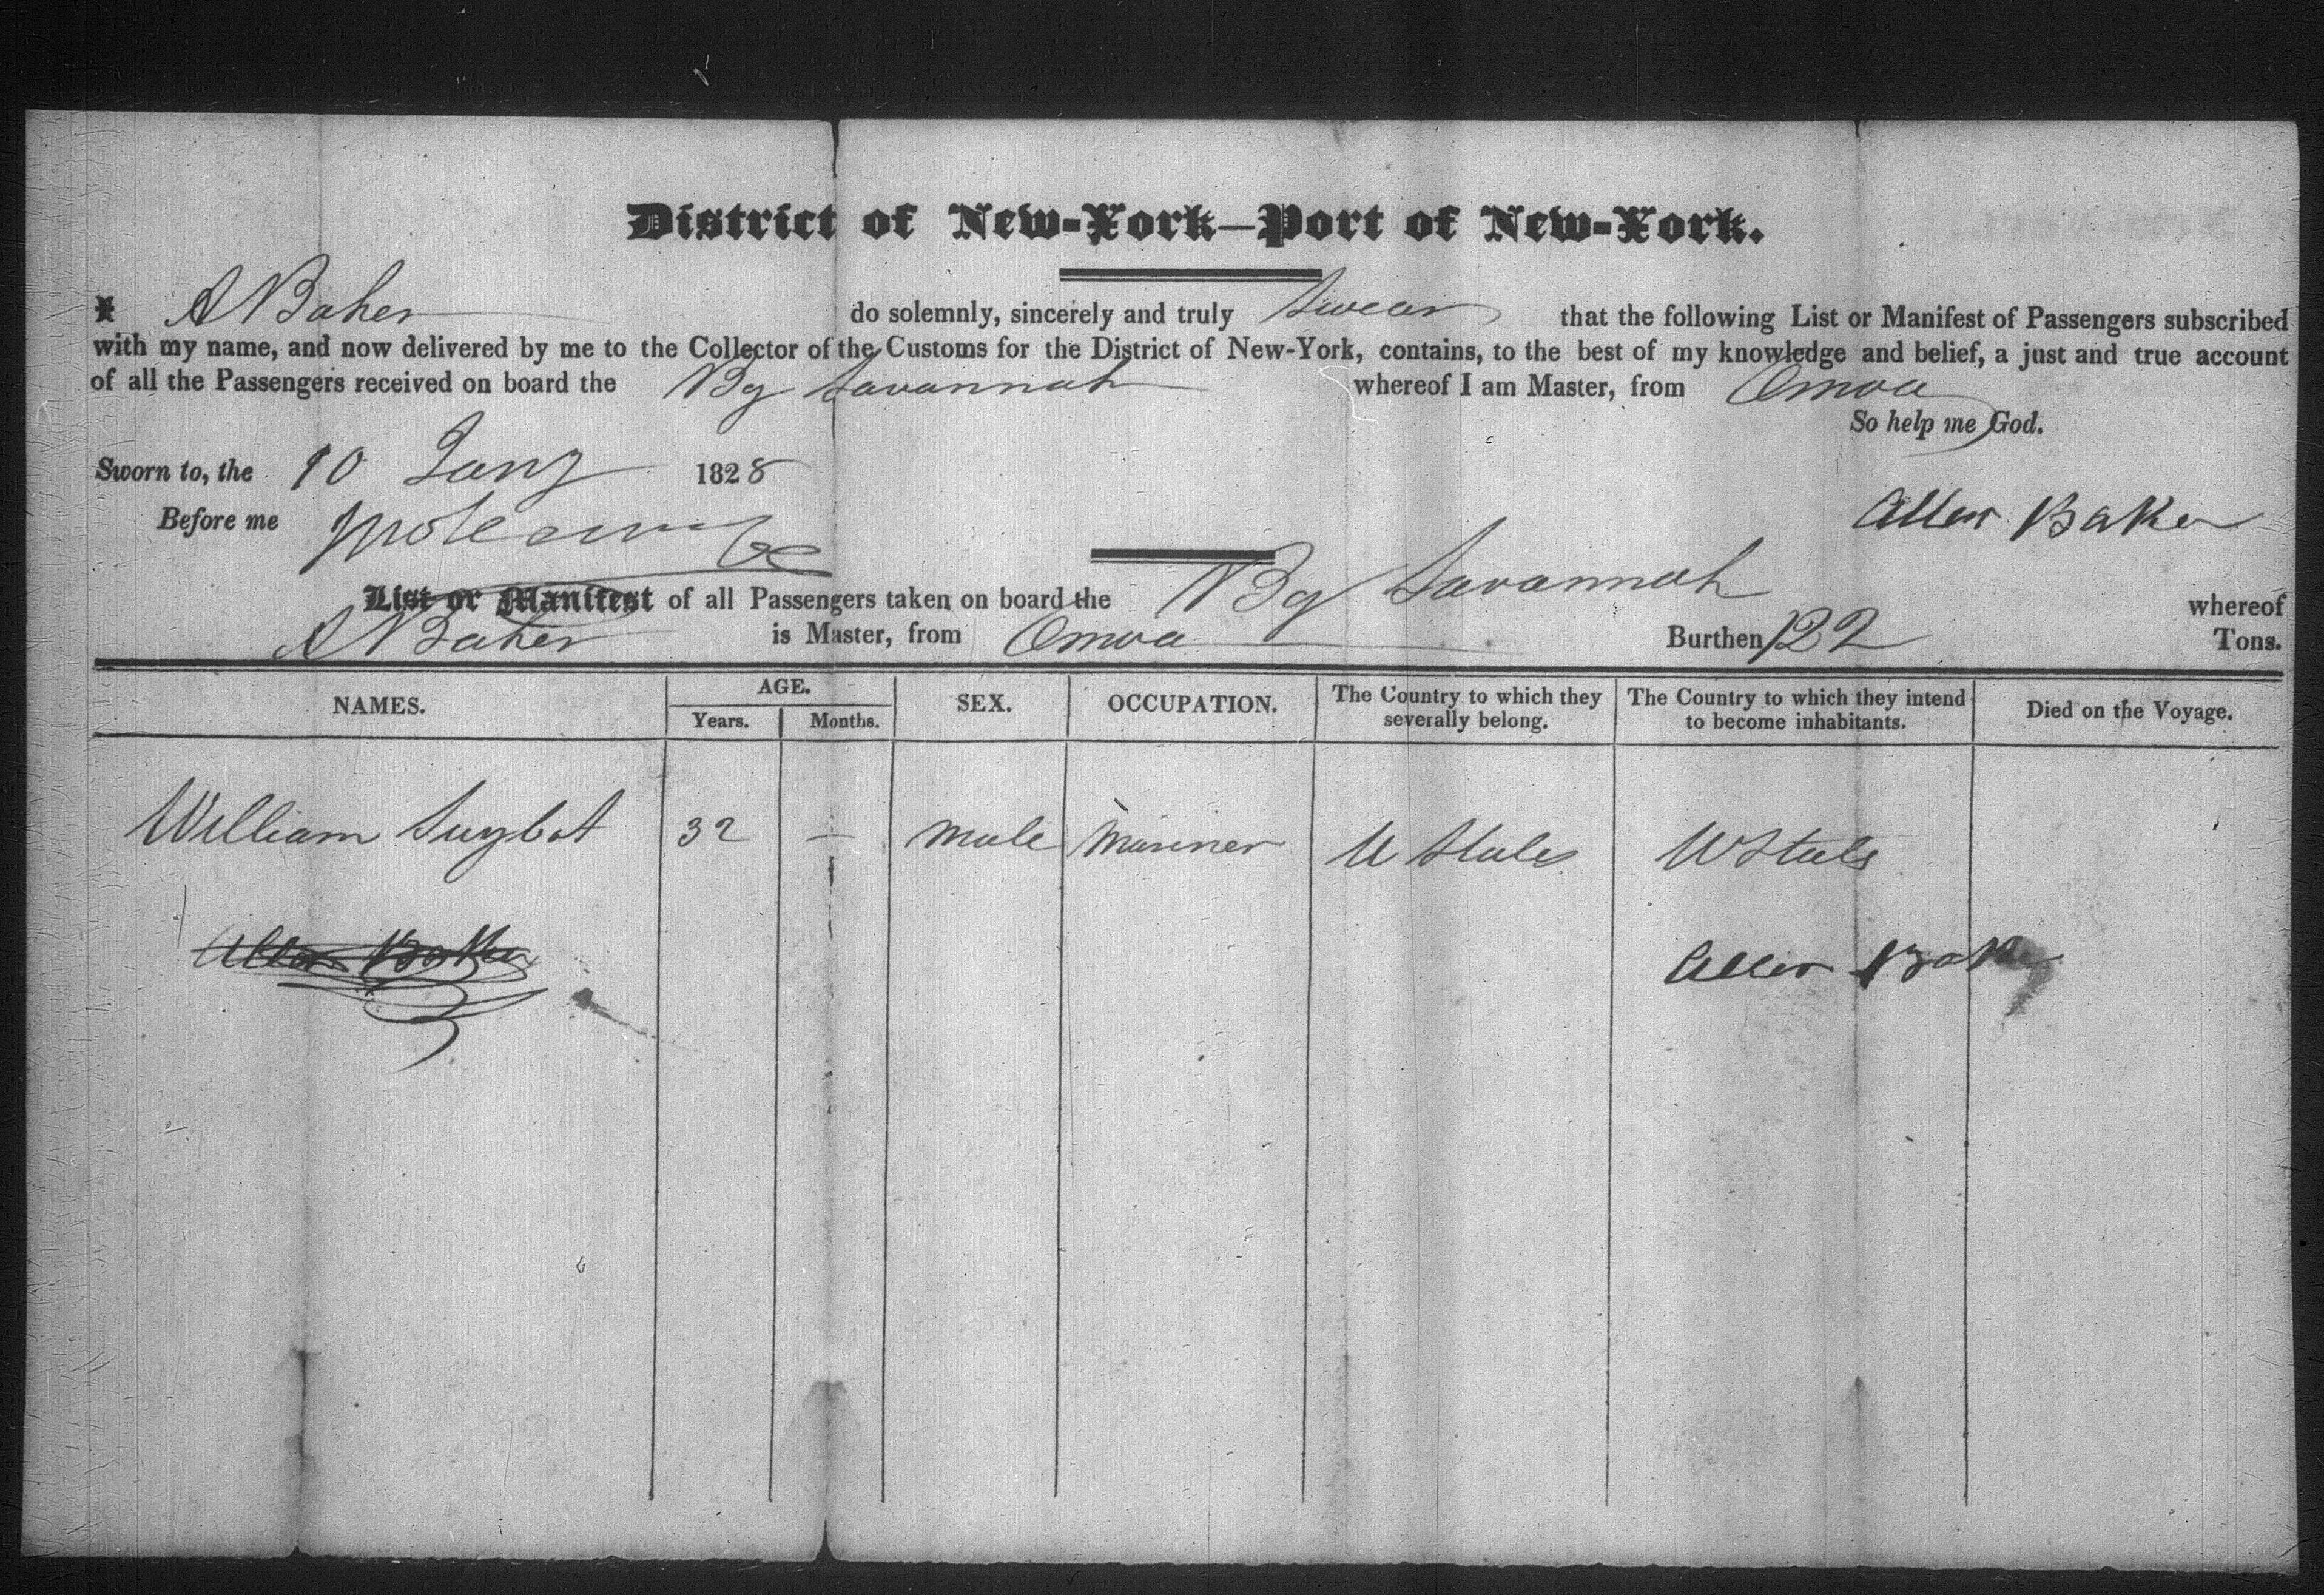 District of New-York—Port of New-York.
I A Baker do solemnly, sincerely and truly Swear that the following List or Manifest of Passengers subscribed
with my name, and now delivered by me to the Collector of the Customs for the District of New-York, contains, to the best of my knowledge and belief, a just and true account
of all the Passengers received on board the Bg Savannah whereof I am Master, from Omoa
So help me God.
Sworn to, the 10 Jany 1828
Before me
Allen Baker
List or Manifest of all Passengers taken on board the Bg Savannah whereof
A Baker is Master, from Omoa Burthen 122 Tons.
NAMES. AGE. SEX. OCCUPATION. The Country to which they severally belong. The Country to which they intend to become inhabitants. Died on the Voyage.
Years. Months.
William 32 — Male Mariner U States U States
Allen Baker
Allen Baker